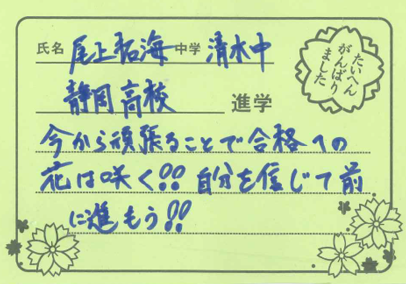 氏名 尾上拓海 中学 清水中
たいへん
がんばり
ました
静岡高校 進学
今から頑張ることで合格への
花は咲く!! 自分を信じて前
に進もう!!